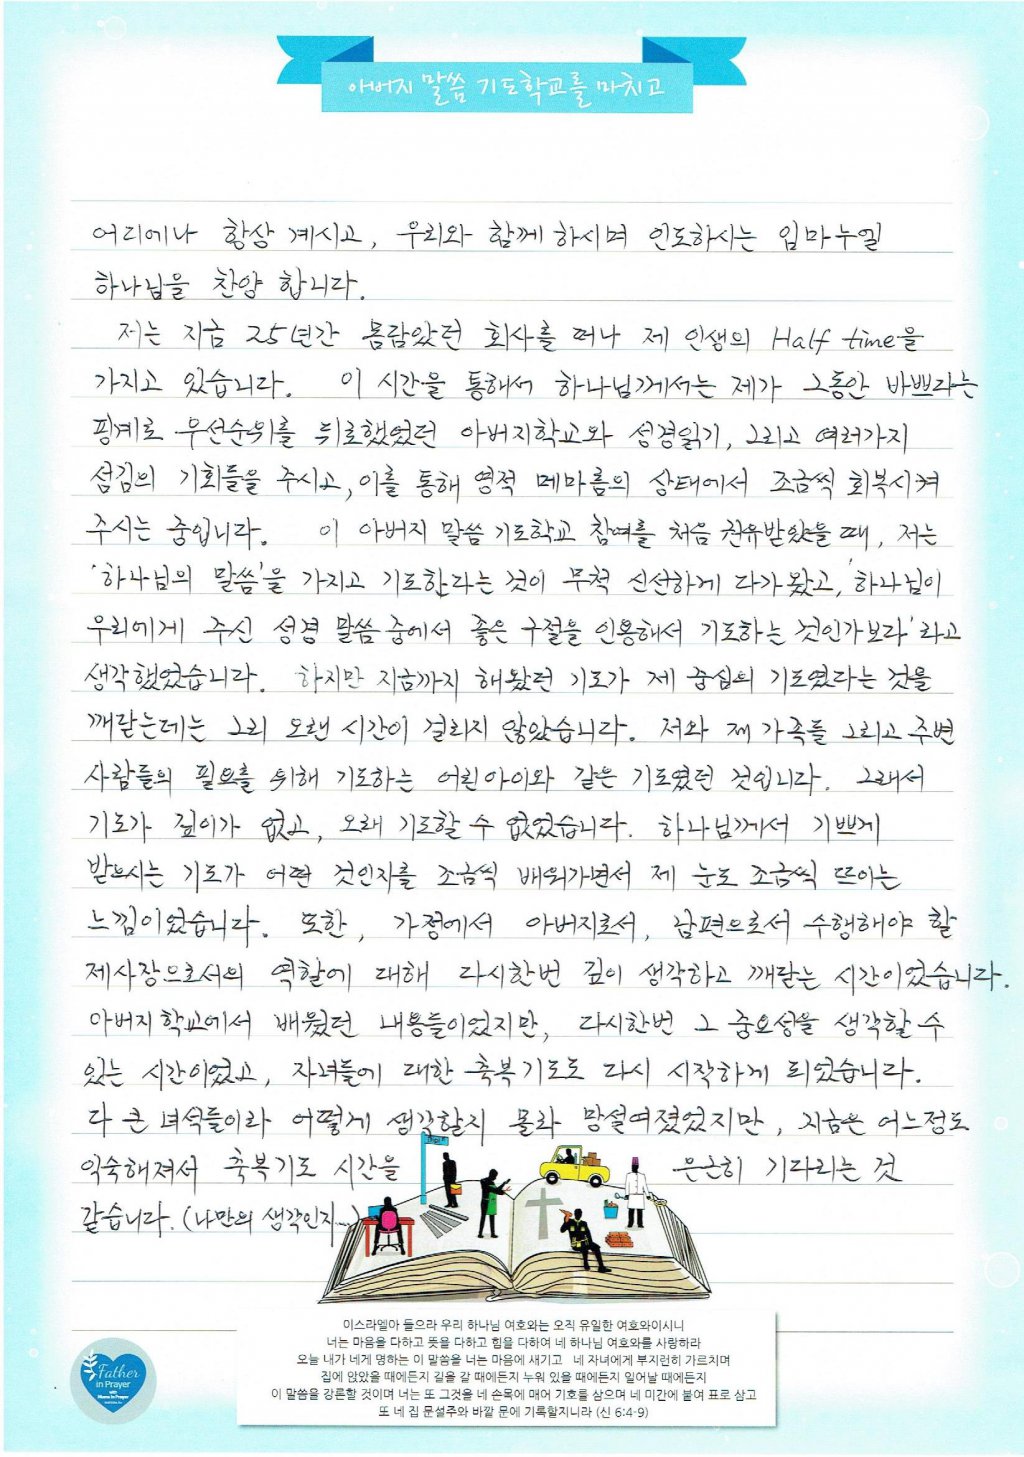 아버지 말씀 기도학교를 마치고
어디에나 항상 계시고, 우리와 함께 하시며 인도하시는 임마누엘
하나님을 찬양 합니다.
저는 지금 25년간 몸담았던 회사를 떠나 제 인생의 Half time을
가지고 있습니다. 이 시간을 통해서 하나님께서는 제가 그동안 바쁘다는
핑계로 우선순위를 뒤로했었던 아버지학교와 성경읽기, 그리고 여러가지
섬김의 기회들을 주시고, 이를 통해 영적 메마름의 상태에서 조금씩 회복시켜
주시는 중입니다. 이 아버지 말씀 기도학교 참여를 처음 권유받았을 때, 저는
'하나님의 말씀'을 가지고 기도한다라는 것이 무척 신선하게 다가왔고, '하나님이
우리에게 주신 성경 말씀 중에서 좋은 구절을 인용해서 기도하는 것인가보다'라고
생각했었습니다. 하지만 지금까지 해왔던 기도가 제 중심의 기도였다라는 것을
깨닫는데는 그리 오랜 시간이 걸리지 않았습니다. 저와 제 가족들 그리고 주변
사람들의 필요를 위해 기도하는 어린아이와 같은 기도였던 것입니다. 그래서
기도가 깊이가 없고, 오래 기도할 수 없었습니다. 하나님께서 기쁘게
받으시는 기도가 어떤 것인지를 조금씩 배워가면서 제 눈도 조금씩 뜨이는
느낌이었습니다. 또한, 가정에서 아버지로서, 남편으로서 수행해야 할
제사장으로서의 역할에 대해 다시한번 깊이 생각하고 깨닫는 시간이었습니다.
아버지학교에서 배웠던 내용들이었지만, 다시한번 그 중요성을 생각할 수
있는 시간이었고, 자녀들에 대한 축복기도도 다시 시작하게 되었습니다.
다 큰 녀석들이라 어떻게 생각할지 몰라 망설여졌었지만, 지금은 어느정도
익숙해져서 축복기도 시간을 은근히 기다리는 것
같습니다. (나만의 생각인지....)
이스라엘아 들으라 우리 하나님 여호와는 오직 유일한 여호와이시니
너는 마음을 다하고 뜻을 다하고 힘을 다하여 네 하나님 여호와를 사랑하라
오늘 내가 네게 명하는 이 말씀을 너는 마음에 새기고 네 자녀에게 부지런히 가르치며
집에 앉았을 때에든지 길을 갈 때에든지 누워 있을 때에든지 일어날 때에든지
이 말씀을 강론할 것이며 너는 또 그것을 네 손목에 매어 기호를 삼으며 네 미간에 붙여 표로 삼고
또 네 집 문설주와 바깥 문에 기록할지니라 (신 6:4-9)
Father
in Prayer
with
Moms In Prayer